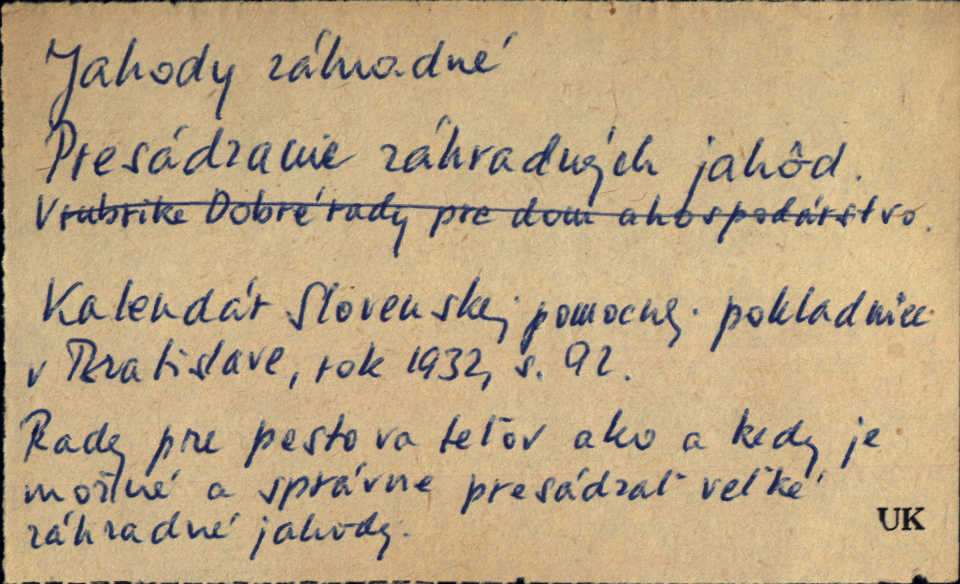 Jahody záhradné
Presádzanie záhradných jahôd.
V rubrike Dobré rady pre dom a hospodárstvo.
Kalendár Slovenskej pomocnej pokladnice
v Bratislave, rok 1932, s. 92.
Rady pre pestovateľov ako a kedy je
možné a správne presádzať veľké
záhradné jahody.
UK